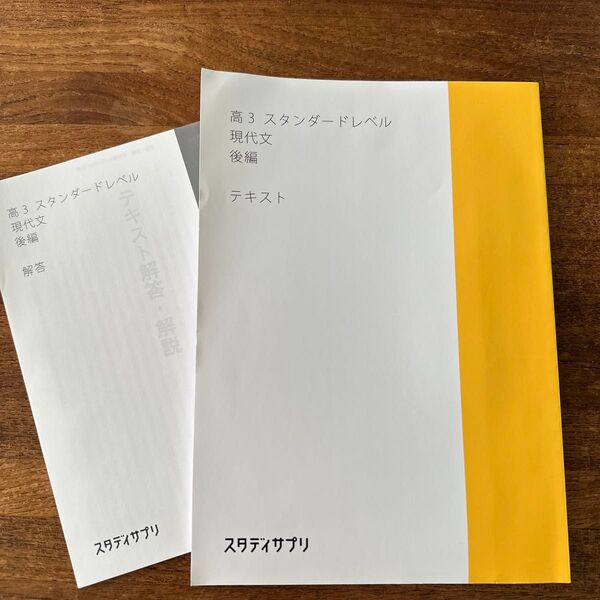 高3 スタンダードレベル
現代文
後編
テキスト
スタディサプリ
高3 スタンダードレベル
現代文
後編
解答
テキスト解答・解説
スタディサプリ